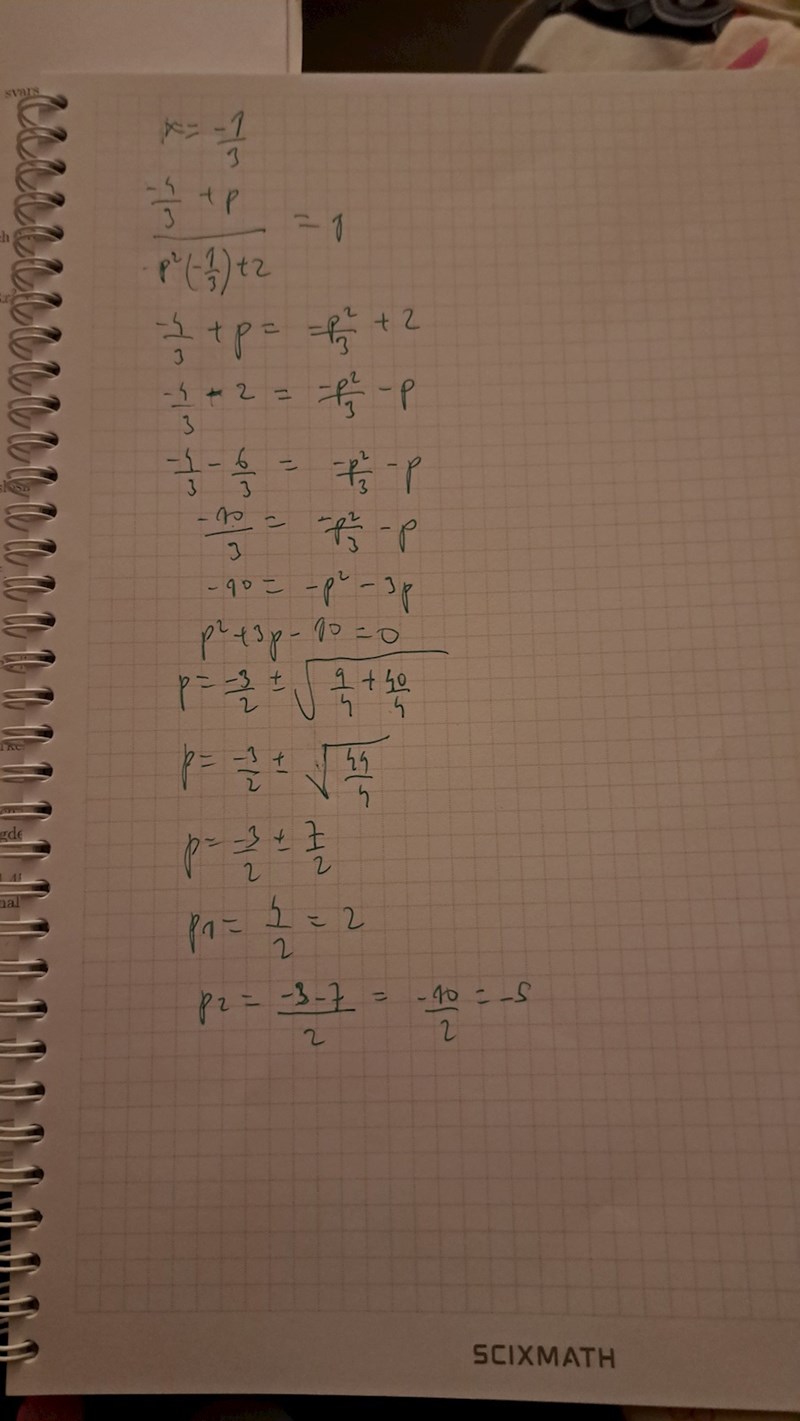 svars
x = -1/3
(-4/3 + p)/(p²(-1/3)+2) = 1
-4/3 + p = -p²/3 + 2
-4/3 - 2 = -p²/3 - p
-4/3 - 6/3 = -p²/3 - p
-10/3 = -p²/3 - p
-10 = -p² - 3p
p² + 3p - 10 = 0
p = -3/2 ± √(9/4 + 40/4)
p = -3/2 ± √(49/4)
p = -3/2 ± 7/2
p1 = 4/2 = 2
p2 = (-3-7)/2 = -10/2 = -5
SCIXMATH